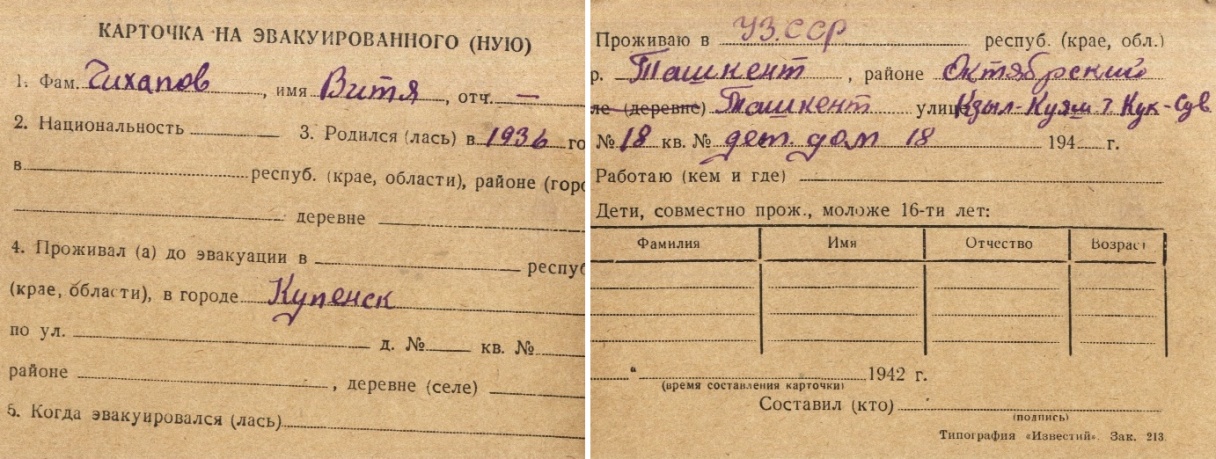 КАРТОЧКА НА ЭВАКУИРОВАННОГО (НУЮ)
1. Фам. Чихапов, имя Витя, отч. —
2. Национальность 3. Родился (лась) в 1936 го
в респуб. (крае, области), районе (горо
деревне
4. Проживал (а) до эвакуации в респуб
(крае, области), в городе Купенск
по ул. д. № кв. №
районе , деревне (селе)
5. Когда эвакуировался (лась)
Проживаю в УЗ.ССР респуб. (крае, обл.)
р. Ташкент, районе Октябрский
ле (деревне) Ташкент улице Кзыл-Куям т. Кук-Сув
№ 18 кв. № дет. дом 18 194 г.
Работаю (кем и где)
Дети, совместно прож., моложе 16-ти лет:
Фамилия Имя Отчество Возраст
" 1942 г.
(время составления карточки)
Составил (кто)
(подпись)
Типография «Известий». Зак. 213.